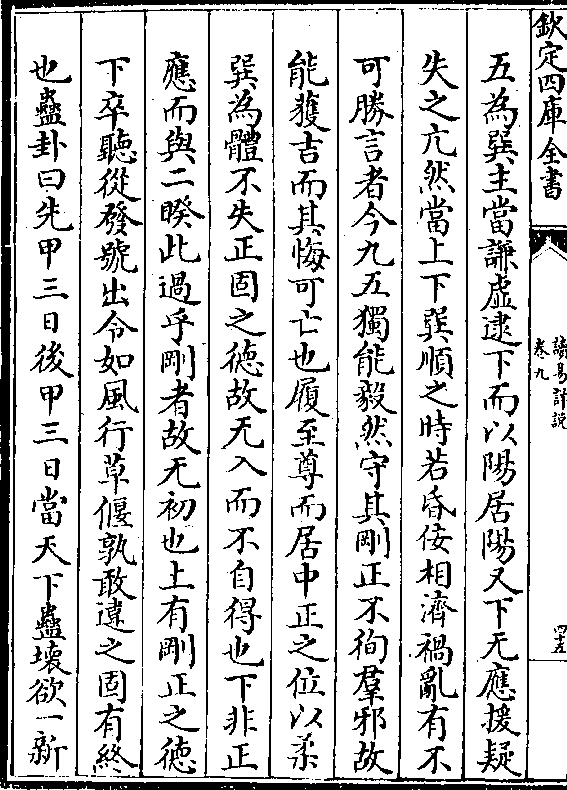 欽定四庫全書
讀易詳說
卷九
四十五
五為巽主當謙虛逮下而以陽居陽又下无應援疑
失之亢然當上下巽順之時若昏佞相濟禍亂有不
可勝言者今九五獨能毅然守其剛正不徇羣邪故
能獲吉而其悔可亡也履至尊而居中正之位以柔
巽為體不失正固之德故无入而不自得也下非正
應而與二暌此過乎剛者故无初也上有剛正之徳
下卒聽從發號出令如風行草偃孰敢違之固有終
也蠱卦曰先甲三日後甲三日當天下蠱壞欲一新